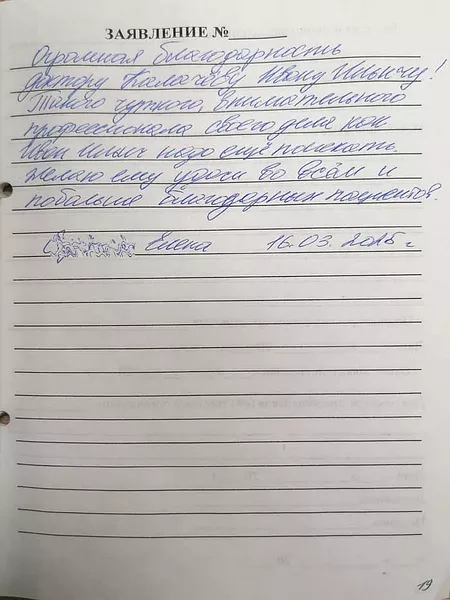 ЗАЯВЛЕНИЕ №
Огромная благодарность
доктору Калачёву Ивану Ильичу!
Такого чуткого, внимательного
профессионала своего дела как
Иван Ильич надо ещё поискать.
Желаю ему удачи во всём и
побольше благодарных пациентов.
Елена 16.03.2025 г
19